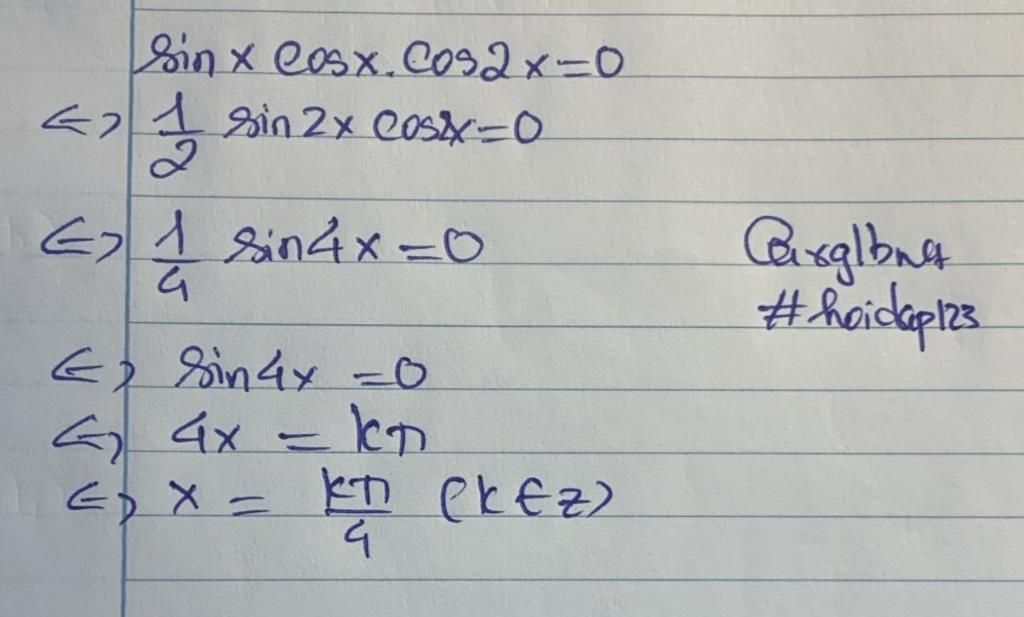 sin x cos x. cos 2x = 0
<=> 1/2 sin 2x cos 2x = 0
<=> 1/4 sin 4x = 0
#hoidap123
<=> sin 4x = 0
<=> 4x = kπ
<=> x = kπ/4 (k ∈ Z)